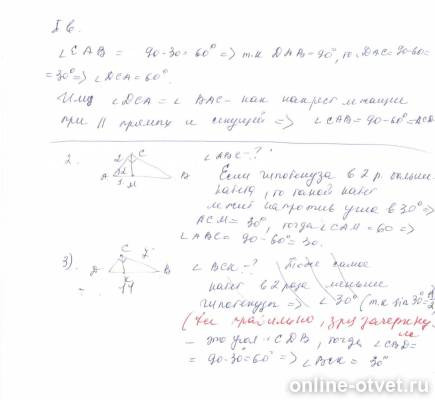 1 б.
∠CAB = 90-30=60° => т.к DAB=90°, то ∠DAC=90-60=
=30° => ∠DCA=60°.
Или ∠DCA = ∠BAC - как накрест лежащие
при || прямых и секущей => ∠CAB=90-60=
2.
C
2
A
1
M
B
∠ABC-?
Если гипотенуза в 2 р. больше
катета, то такой катет
лежит напротив угла в 30° =>
ACM = 30°, тогда ∠CAM = 60 =>
∠ABC = 90-60=30.
3)
C
7
D
B
14
∠BCK-? Тоже самое
катет в 2 раза меньше
гипотенузы => ∠30° (т.к sin30°=1/2
(ты правильно, зря зачеркнул
- это угол CDB, тогда ∠CBD=
= 90-30=60° => ∠BCK = 30°
online-otvet.ru